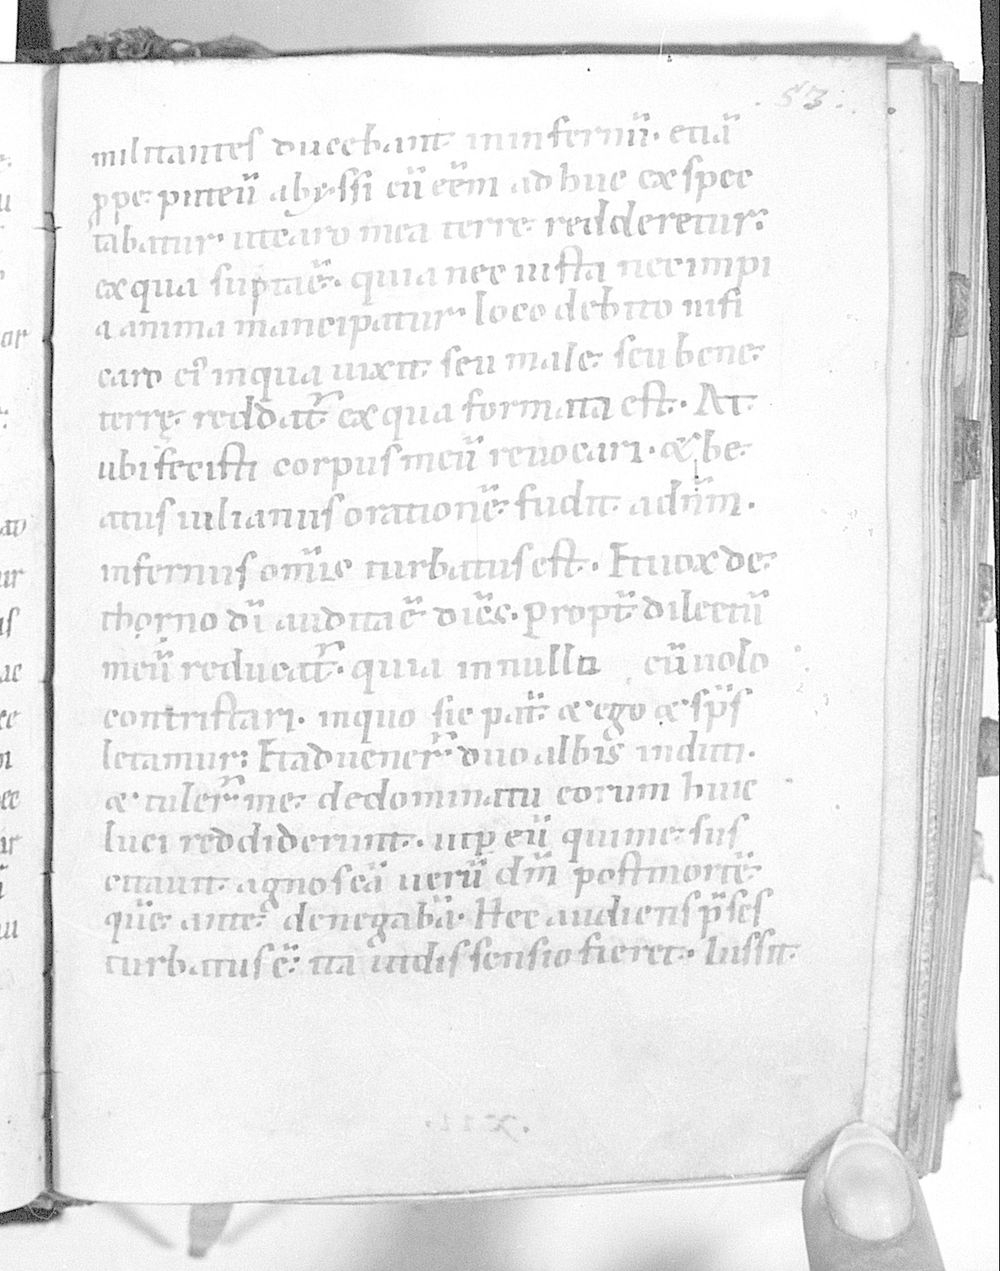 .53.
militantes ducebant in infernū. etiā
ꝓpe puteū abyssi cū eēm adhuc expec
tabatur. ut caro mea terre redderetur.
ex qua sūpta ē. quia nec iusta nec impi
a anima mancipatur loco debito nisi
caro ei᷒ in qua uixit seu male seu bene
terrę reddat᷑ ex qua formata est. At
ubi fecisti corpus meū reuocari. & be
atus iulianus orationē fudit ad dn̄m.
infernus om̄is turbatus est. Et uox de
thorno dī audita ē diēs. Propt̄ dilectū
meū reducat᷑. quia in nullo eū uolo
contristari. in quo sic pat̄ & ego & sp̄s
letamur. Et aduener̄ duo albis induti.
& tuler̄ me de dominatu eorum huic
luci reddiderunt. ut ꝑ eū qui me sus
citauit agnoscā uerū dn̄m post mortē
quē ante denegabā. Hec audiens p̄ses
turbatus ē. ita ut dissensio fieret. Iussit
.XII.